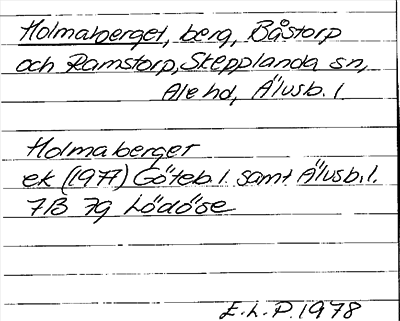 Holmaberget, berg, Båstorp
och Ramstorp, Skepplanda sn,
Ale hd, Älvsb. l.
Holmaberget
ek (1977) Göteb. l. samt Älvsb. l.
7B 7g Lödöse
E.L.P. 1978